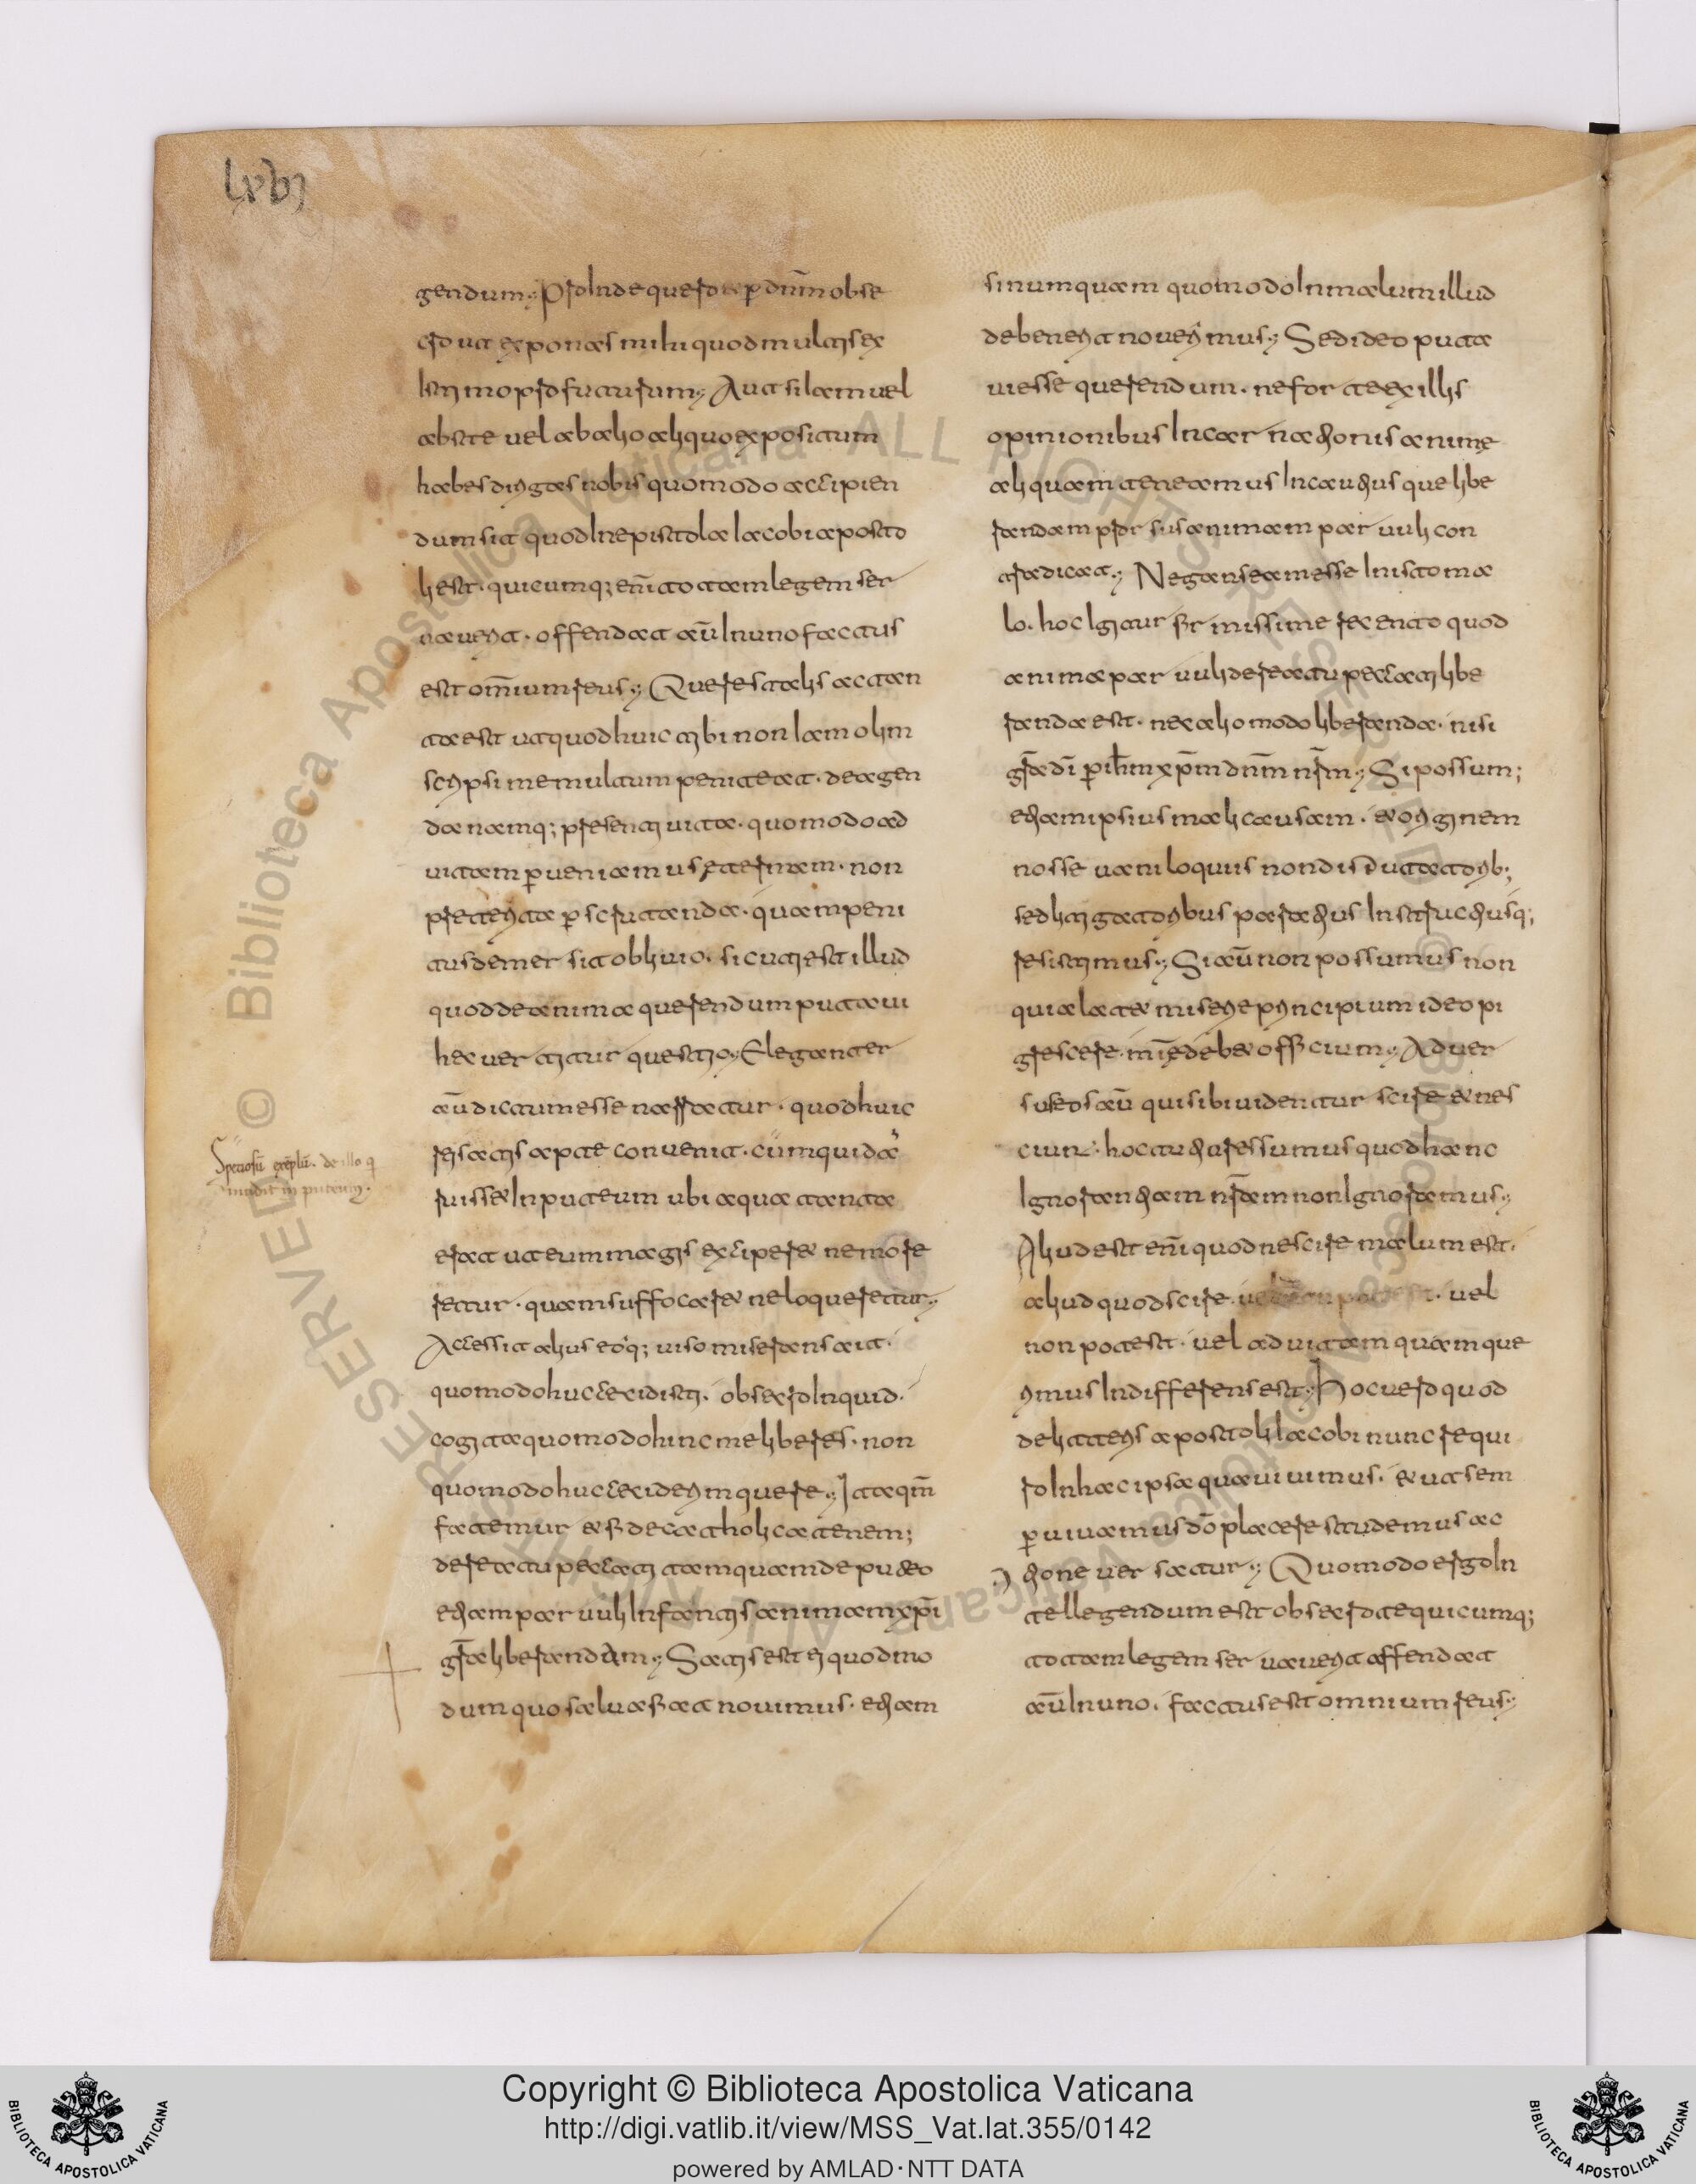 lxvi
gendum; Proinde quero & p dnm obse
cro ut exponas mihi quod multis ex
istimo profuturum; Aut si iam vel
abs te vel ab alio aliquo expositum
habes dirigas nobis quomodo accipien
dum sit quod in epistola iacobi aposto
li est. quicumq; eni totam legem ser
vaverit. offendat au in uno factus
est omium reus; Que res talis ac tan
ta est ut quod huic tibi non iam olim
scripsi me multum peniteat. de agen
da namq; presenti vita. quomodo ad
vitam pveniamus eternam. non
preterita pscrutanda. quam peni
tus demersit oblivio. sicuti est illud
quod de anima querendum putavi
hec vertitur questio; Eleganter
au dictum esse narratur. quod huic
rei satis apte convenit. cum quida
ruisset in puteum ubi aqua tanta
erat ut eum magis exciperet ne more
retur. quam suffocaret ne loqueretur;
Accessit alius eoq; viso miserans ait.
quomodo huc cecidisti. obsecro inquid.
cogita quomodo hinc me liberes. non
quomodo huc ceciderim quere; Ita qm
fatemur & fide catholica tenem;
de reatu peccati tamquam de puteo
etiam parvuli infantis animam xpi
gra liberandam; Satis est ei quod mo
dum quo salva fiat novimus. etiam
Speciosu exeplu. de illo q
incidit in puteum.
si numquam quomodo in malum illud
devenerit noverimus; Sed ideo puta
vi esse querendum. ne forte ex illis
opinionibus incarnationis anime
aliquam teneamus incautius que libe
randam prorsus animam parvuli con
tradicat; Negans eam esse in isto ma
lo. hoc igitur firmissime retento quod
anima parvuli de reatu peccati libe
randa est. nec alio modo liberanda. nisi
gra di p ihm xpm dnm nrm; Si possum;
etiam ipsius mali causam. & originem
nosse vaniloquiis non disputatorib;
sed litigatoribus paratius instructiusq;
resistimus; Si au non possumus non
quia latet miserie principium ideo pi
grescere mie debet officium; Adver
sus eos au qui sibi videntur scire & nes
ciun. hoc tutiores sumus quod hanc
ignorantiam nram non ignoramus;
Aliud est eni quod nescire malum est.
aliud quod scire vel non potest. vel
non potest. vel ad vitam quam que
rimus indifferens est; Hoc vero quod
de litteris apostoli iacobi nunc requi
ro in hac ipsa qua vivimus. & ut sem
p vivamus do placere studemus ac
tione versatur; Quomodo ergo in
tellegendum est obsecro te quicumq;
totam legem servaverit offendat
au in uno. factus est omnium reus;
Copyright © Biblioteca Apostolica Vaticana
http://digi.vatlib.it/view/MSS_Vat.lat.355/0142
powered by AMLAD·NTT DATA
BIBLIOTECA APOSTOLICA VATICANA
BIBLIOTECA APOSTOLICA VATICANA